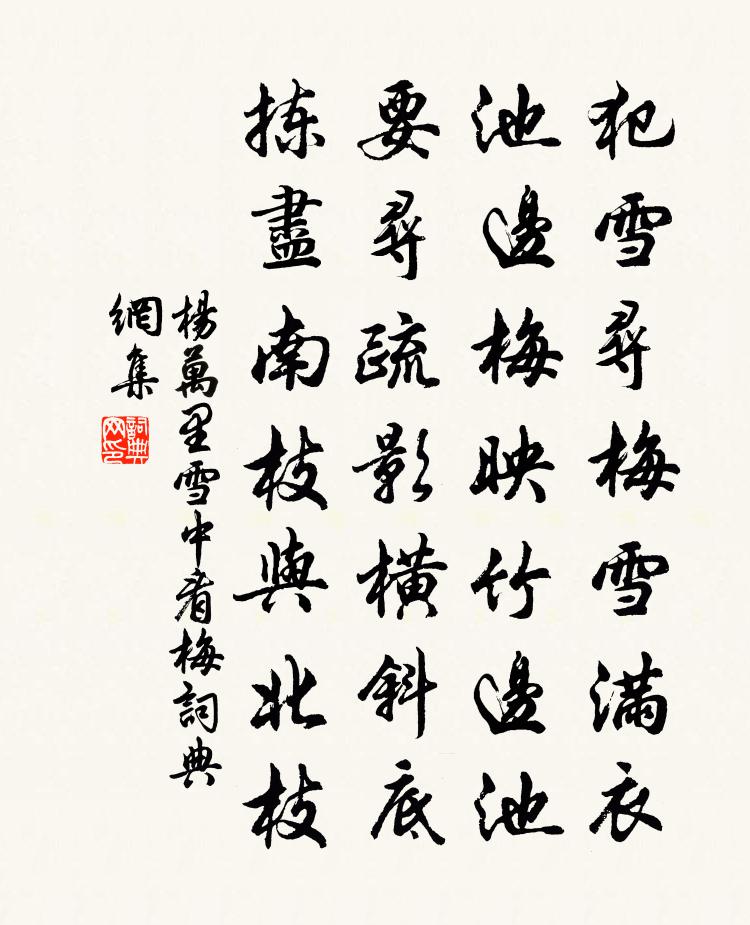 犯雪尋梅雪滿衣
池邊梅映竹邊池
要尋疏影橫斜底
揀盡南枝與北枝
楊萬里雪中看梅詞典
網集
詞典
网印